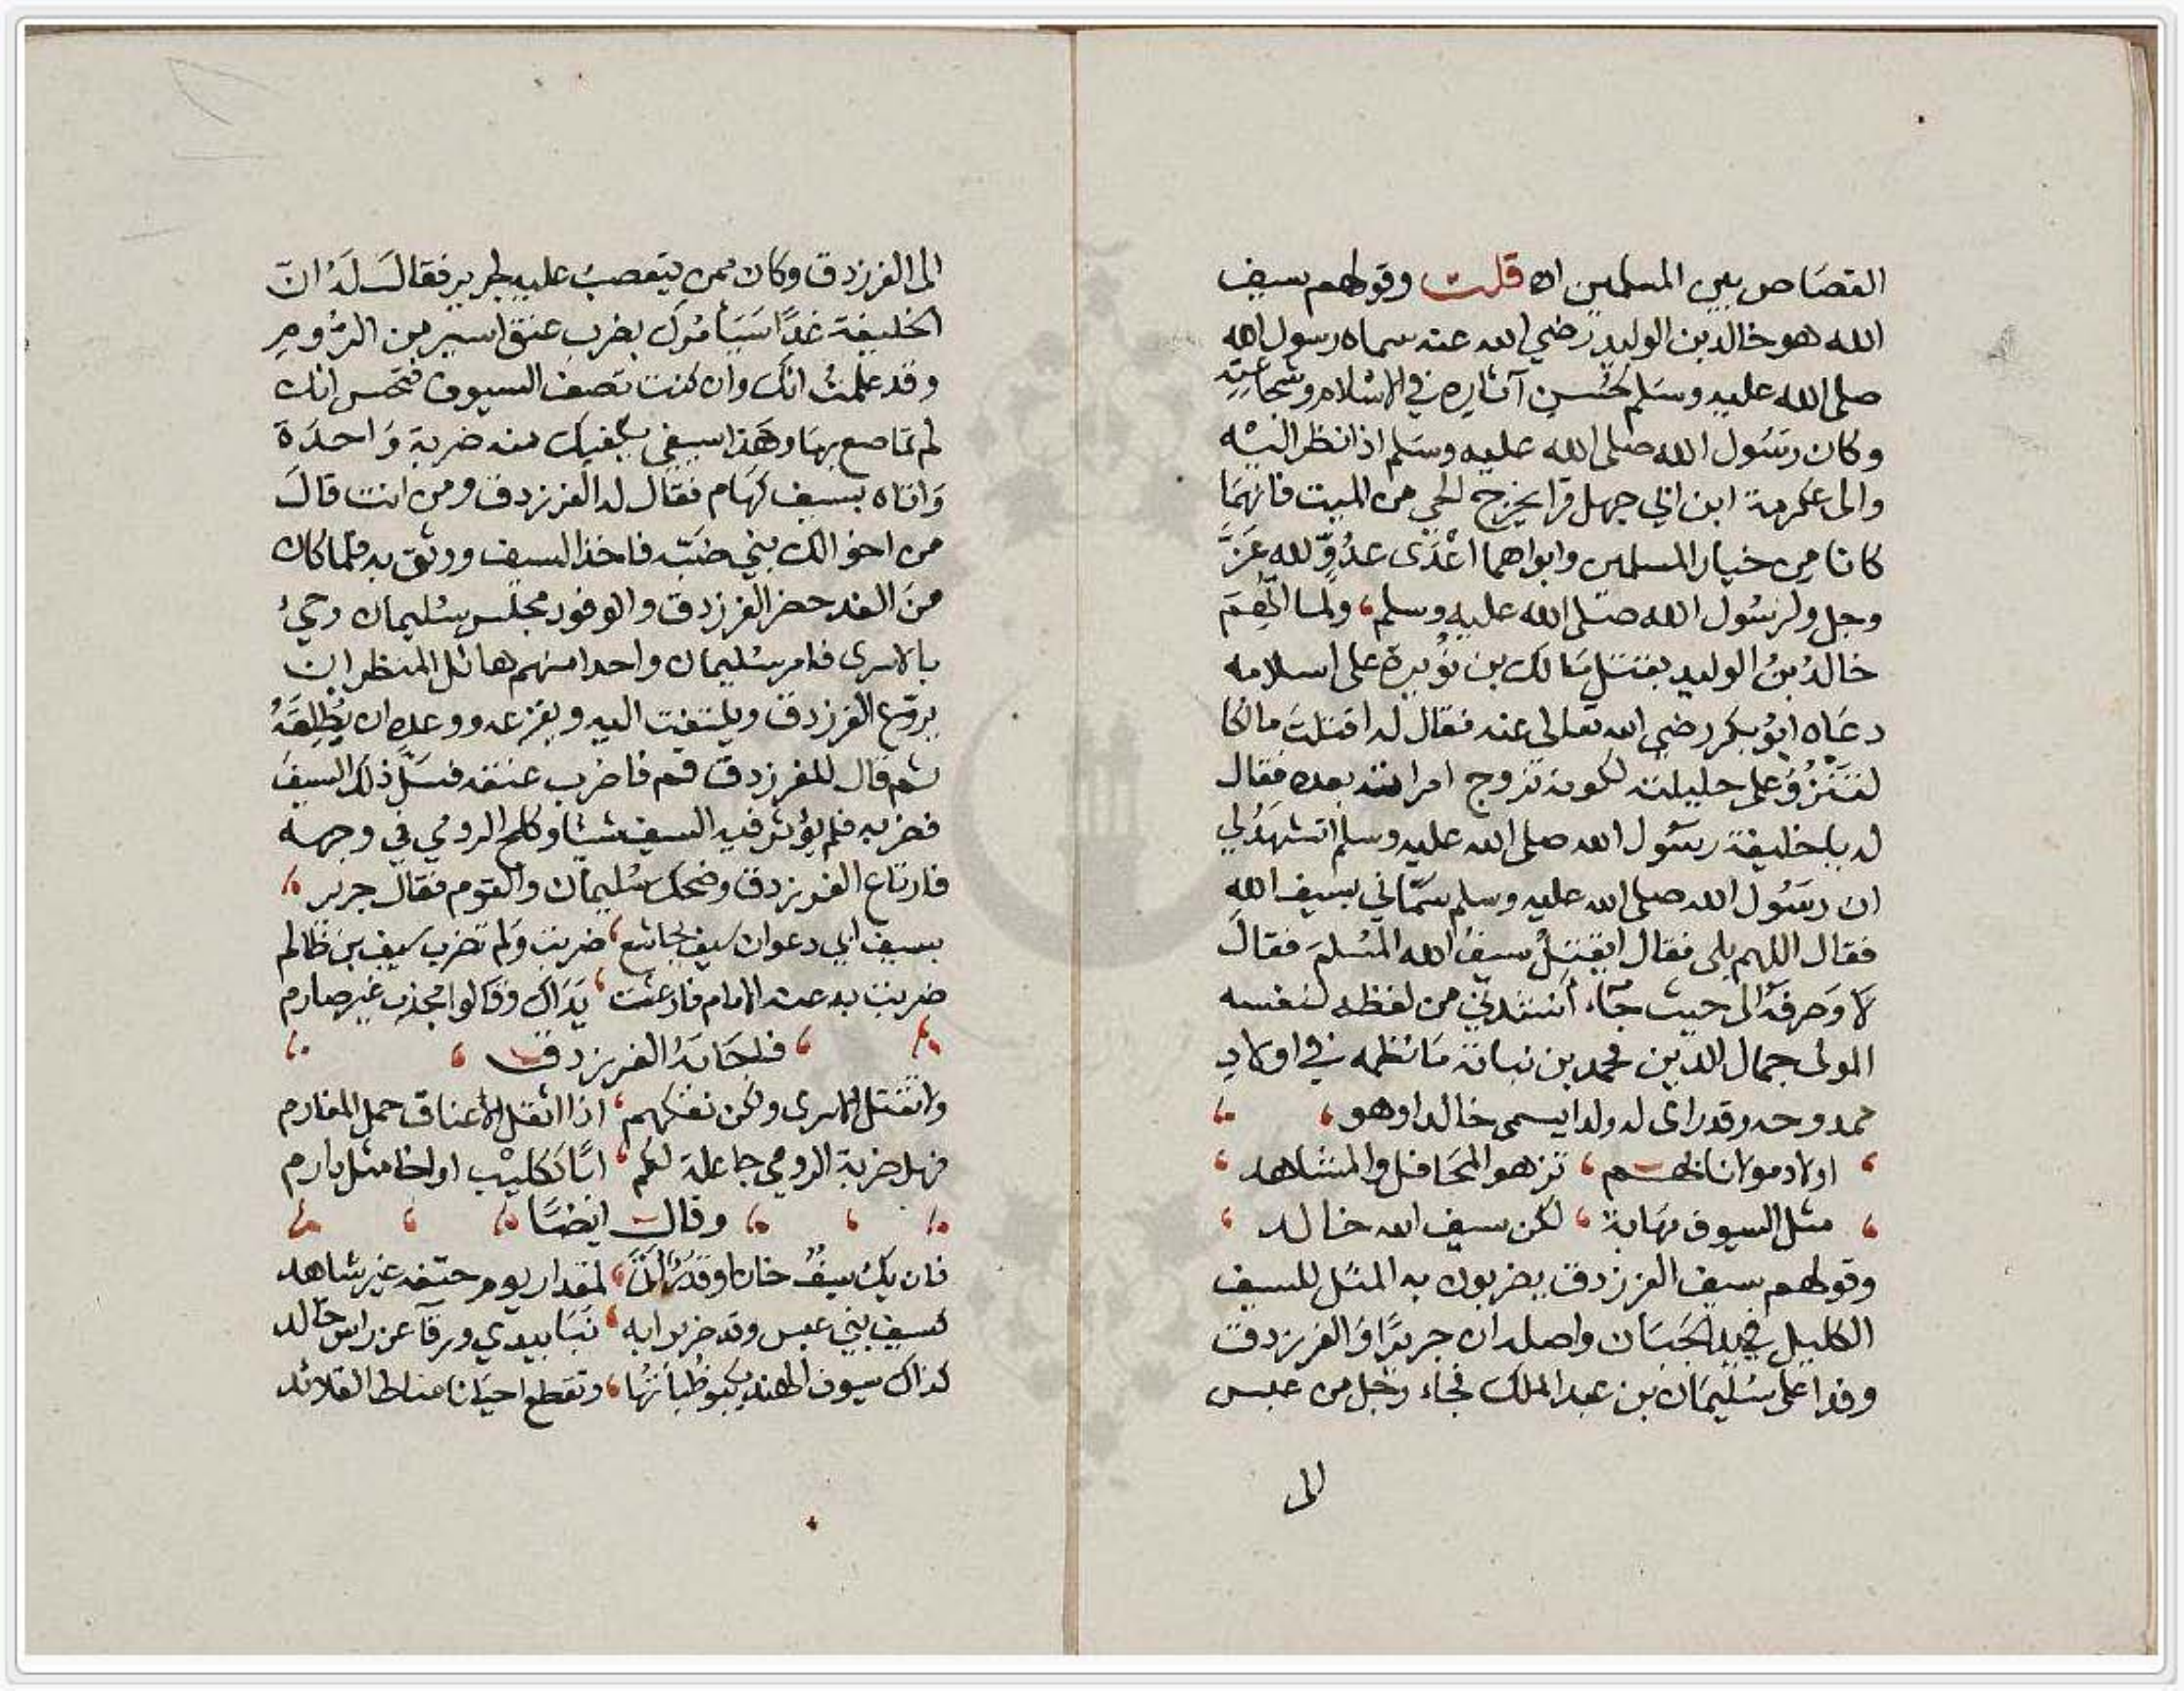 القصَاص بين المسلمين اه قلت وقولهم سيف
الله هو خالد بن الوليد رضي الله عنه سماه رسول الله
صلى الله عليه وسَلم لحُسن آثاره في الاسْلام وشجاعته
وكان رسُول الله صلى الله عليه وسَلم اذا نظر اليْه
والى عكرمة ابن ابي جهل قرا يخرج الحي من الميت فانهمَا
كانا من خيار المسلمين وابواهما اعْدَى عدُوٍّ لله عَزَّ
وجل ولرسُول الله صَلى الله عليه وسلم، ولما اتُّهِمَ
خالدُ بنُ الوليد بقتل مَالك بن نُوَيرة على اسلامه
دعَاه ابُو بكر رضي الله تعالى عنه فقال له اقتلتَ مالكا
لتَنْزُوَ على حليلته لكونه تزوج امراته بعده فقال
له يا خليفة رسُول الله صلى الله عليه وسلم اتشهَدُ لي
ان رسُول الله صلى الله عليه وسلم سَمَّاني بسيف الله
فقال اللهم بلى فقال ايَقتلُ سيفُ الله المُسْلمَ فقالَ
لا وَصرفهُ الى حيث جَاء أنشدني من لفظه لنفسه
المولى جمال الدين محمد بن نباتة مَا نظمه في اولادِ
ممدوحه وقد راى له ولدا يسمى خالدا وهو،
اولاد مولانا لهم ، تزهو المحَافل والمشاهد
مثل السيوف نهَابة ، لكن سيف الله خالد
وقولهم سيف الفرزدق يضربون به المثل للسيف
الكليل في يد الجبَان واصله ان جريرًا وَالفرزدق
وفدا على سُليمَان بن عبد الملك فجَاء رجُل من عبس
الى
الى الفرزدق وكان ممن يتعصبُ عليه لجرير فقالَ لَهُ انَّ
الخليفة غدًا سَيَأمُرُك بضرب عنق اسير من الرُّومِ
وقد علمتُ انك وان كنت تصف السيوف فتحسن انك
لم تمَاصع بهَا وهَذا سيفي يكفيك منه ضربة وَاحدَة
وَاتاه بسيف كهَام فقال له الفرزدق ومن انت قالَ
من اخوالك بني ضبّه فاخذ السيف ووثق به فلما كان
منَ الغد حضر الفرزدق والوفود مجلس سُليمان وجيءَ
بالاسرى فامر سُليمان واحدا منهم هائل المنظر ان
يروّع الفرزدق ويلتفِت اليه ويفزعه ووعده ان يُطلِقَهُ
ثم قال للفرزدق قم فاضرب عنقه فسَلَّ ذلك السيفَ
فضربه فلم يؤثر فيه السيف شيئا وكلح الرومي في وجهه
فارتاع الفرزدق وضحك سُليمان والقوم فقال جرير
بسيف ابي رغوان سيف مجاشع ، ضربت ولم تضرب بسيف بن ظالم
ضربت به عند الامام فارعشت ، يَدَاك وقالوا مُحدَث غير صارم
، فاجَابَهُ الفرزدق ،
ولا نقتل الاسرى ولكن نفكهم ، اذا اثقل الاعناق حمل المغارم
فهل ضربة الرومي جاعلة لكم ، ابًا ككليْب او اخا مثل دارم
وقال ايضًا
فان يك سيفٌ خان او قَدَرٌ ، لمقدار يوم حتفه غير شاهد
كسيف بني عبس وقد ضربوا به ، نبَا بيدي ورقآ عن راس خالد
كذاك سيوف الهند ينبو ظُباتهُا ، وتقطع احيَانا مناط القلائد